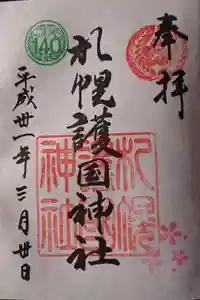 奉拝
札幌護國神社
平成廿一年三月廿日
140
札幌護國神社